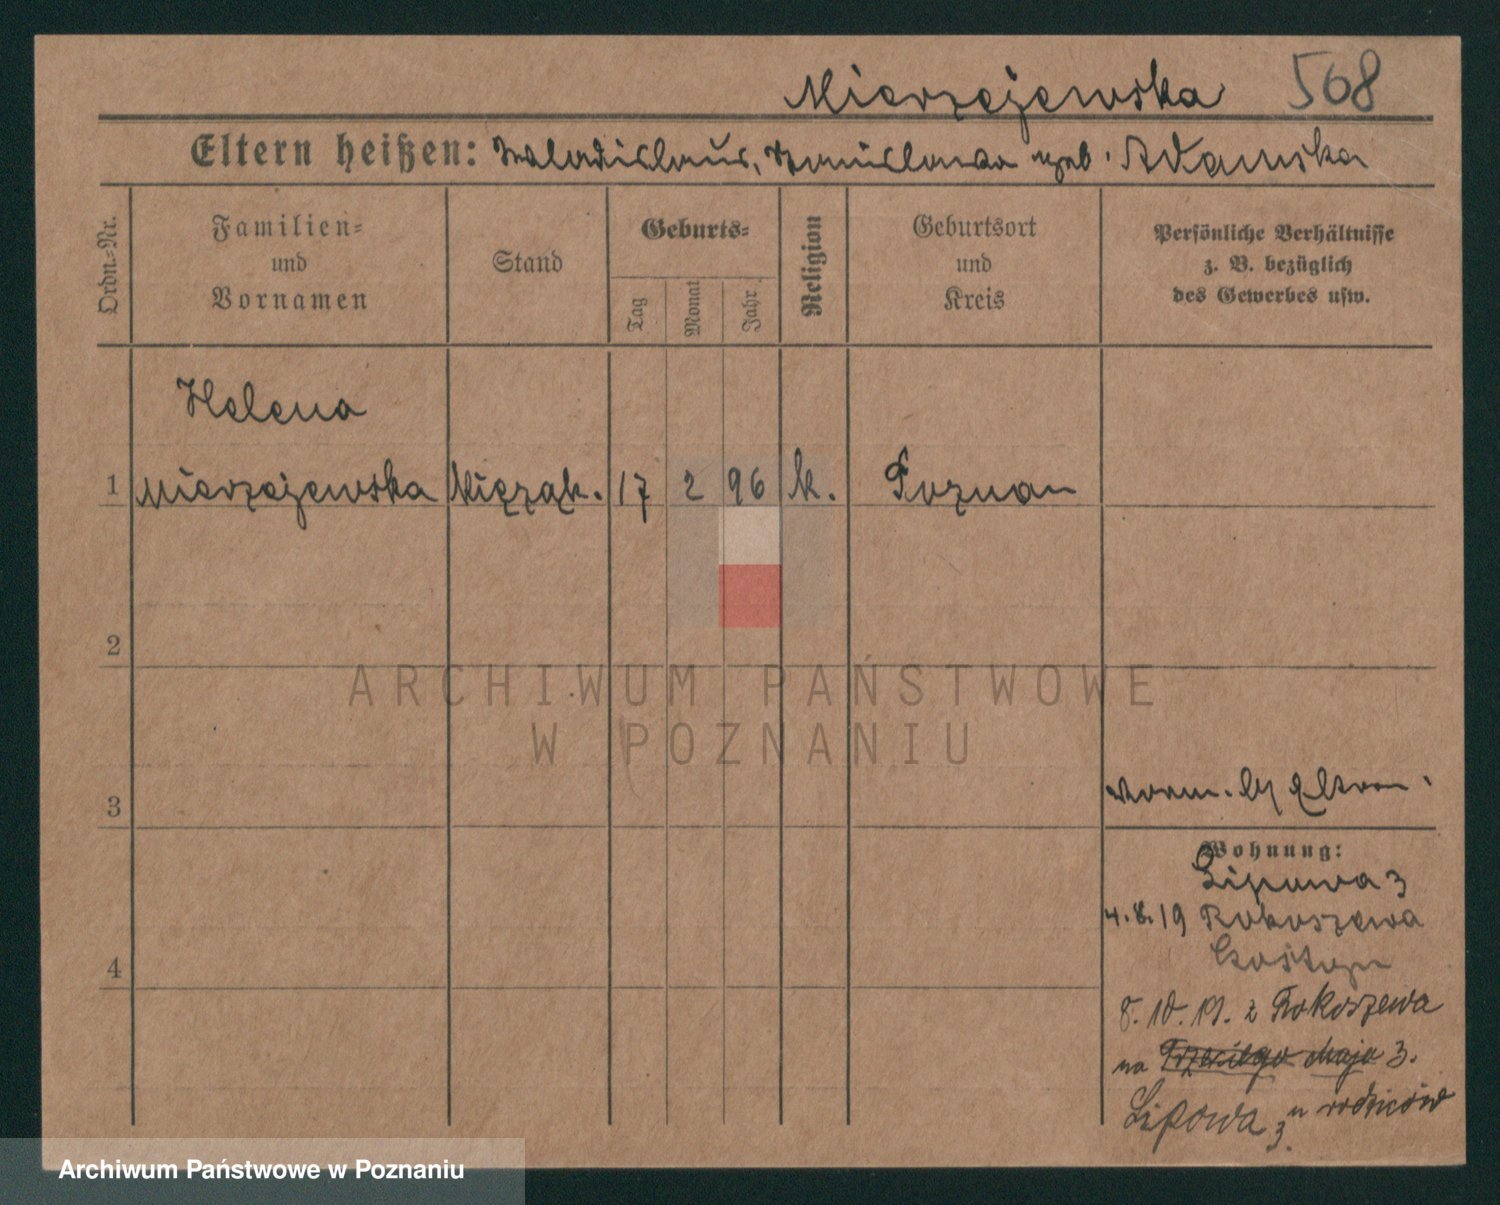 Mierzejewska 568
Eltern heißen: Wladislaus, Stanislawa geb. Adamska
Ordn.-Nr.
Familien-
und
Vornamen
Stand
Geburts-
Tag
Monat
Jahr
Religion
Geburtsort
und
Kreis
Persönliche Verhältnisse
z. B. bezüglich
des Gewerbes usw.
Helena
1 Mierzejewska 17 2 96 k. Poznan
2
ARCHIWUM PAŃSTWOWE
W POZNANIU
3
Eltern
Wohnung:
Lipowa 3
4.8.19 Rokoszewa
Gostyn
4
8.10.19. z Rokoszewa
na Trzeciego Maja 3.
Lipowa 3. u rodziców
Archiwum Państwowe w Poznaniu